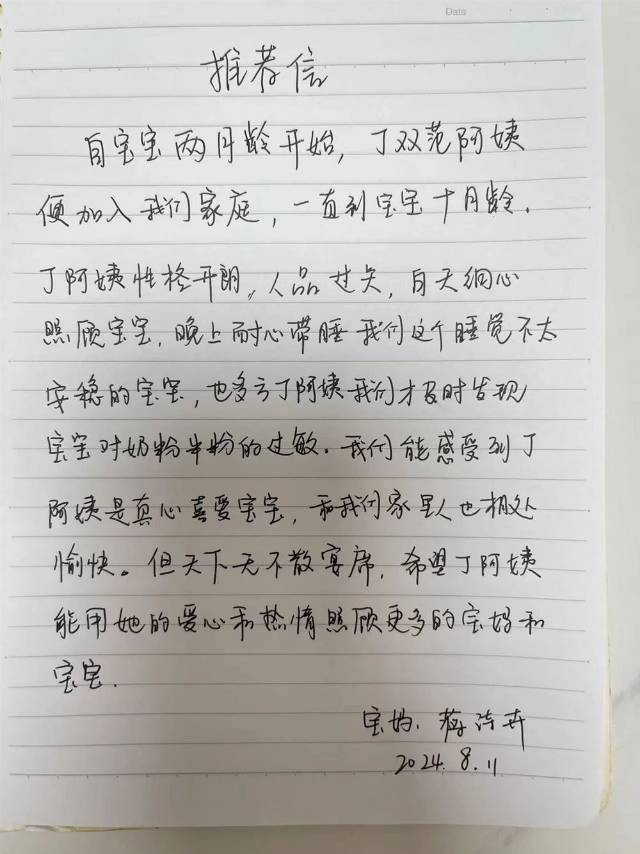 Date
推荐信
自宝宝两月龄开始，丁双范阿姨
便加入我们家庭，一直到宝宝十月龄.
丁阿姨性格开朗，人品过关，白天细心
照顾宝宝，晚上耐心带睡我们这个睡觉不太
安稳的宝宝，也多亏丁阿姨我们才及时发现
宝宝对奶粉米粉的过敏. 我们能感受到丁
阿姨是真心喜爱宝宝，和我们家里人也相处
愉快。但天下无不散宴席，希望丁阿姨
能用她的爱心和热情照顾更多的宝妈和
宝宝.
宝妈. 蒋
2024. 8. 11